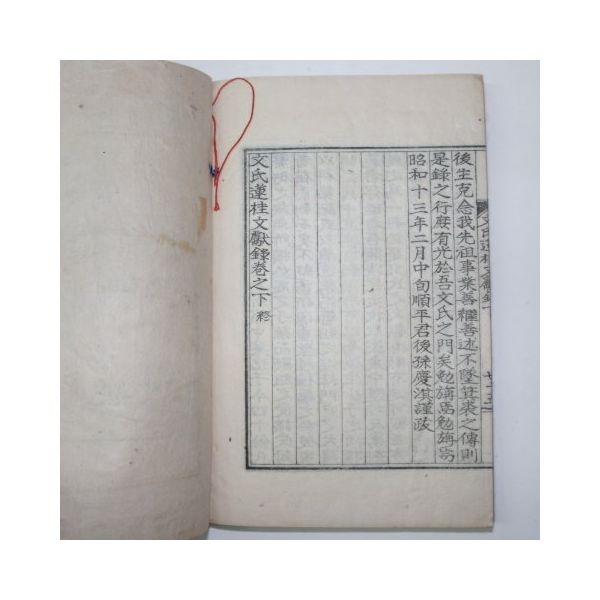 後生克念我先祖事業善繼善述不墜箕裘之傳則
是錄之行庶有光於吾文氏之門矣勉旃焉勉旃焉
昭和十三年二月中旬順平君後孫慶淇謹跋
文氏蓮桂文獻錄卷之下 終
文氏蓮桂文獻錄下